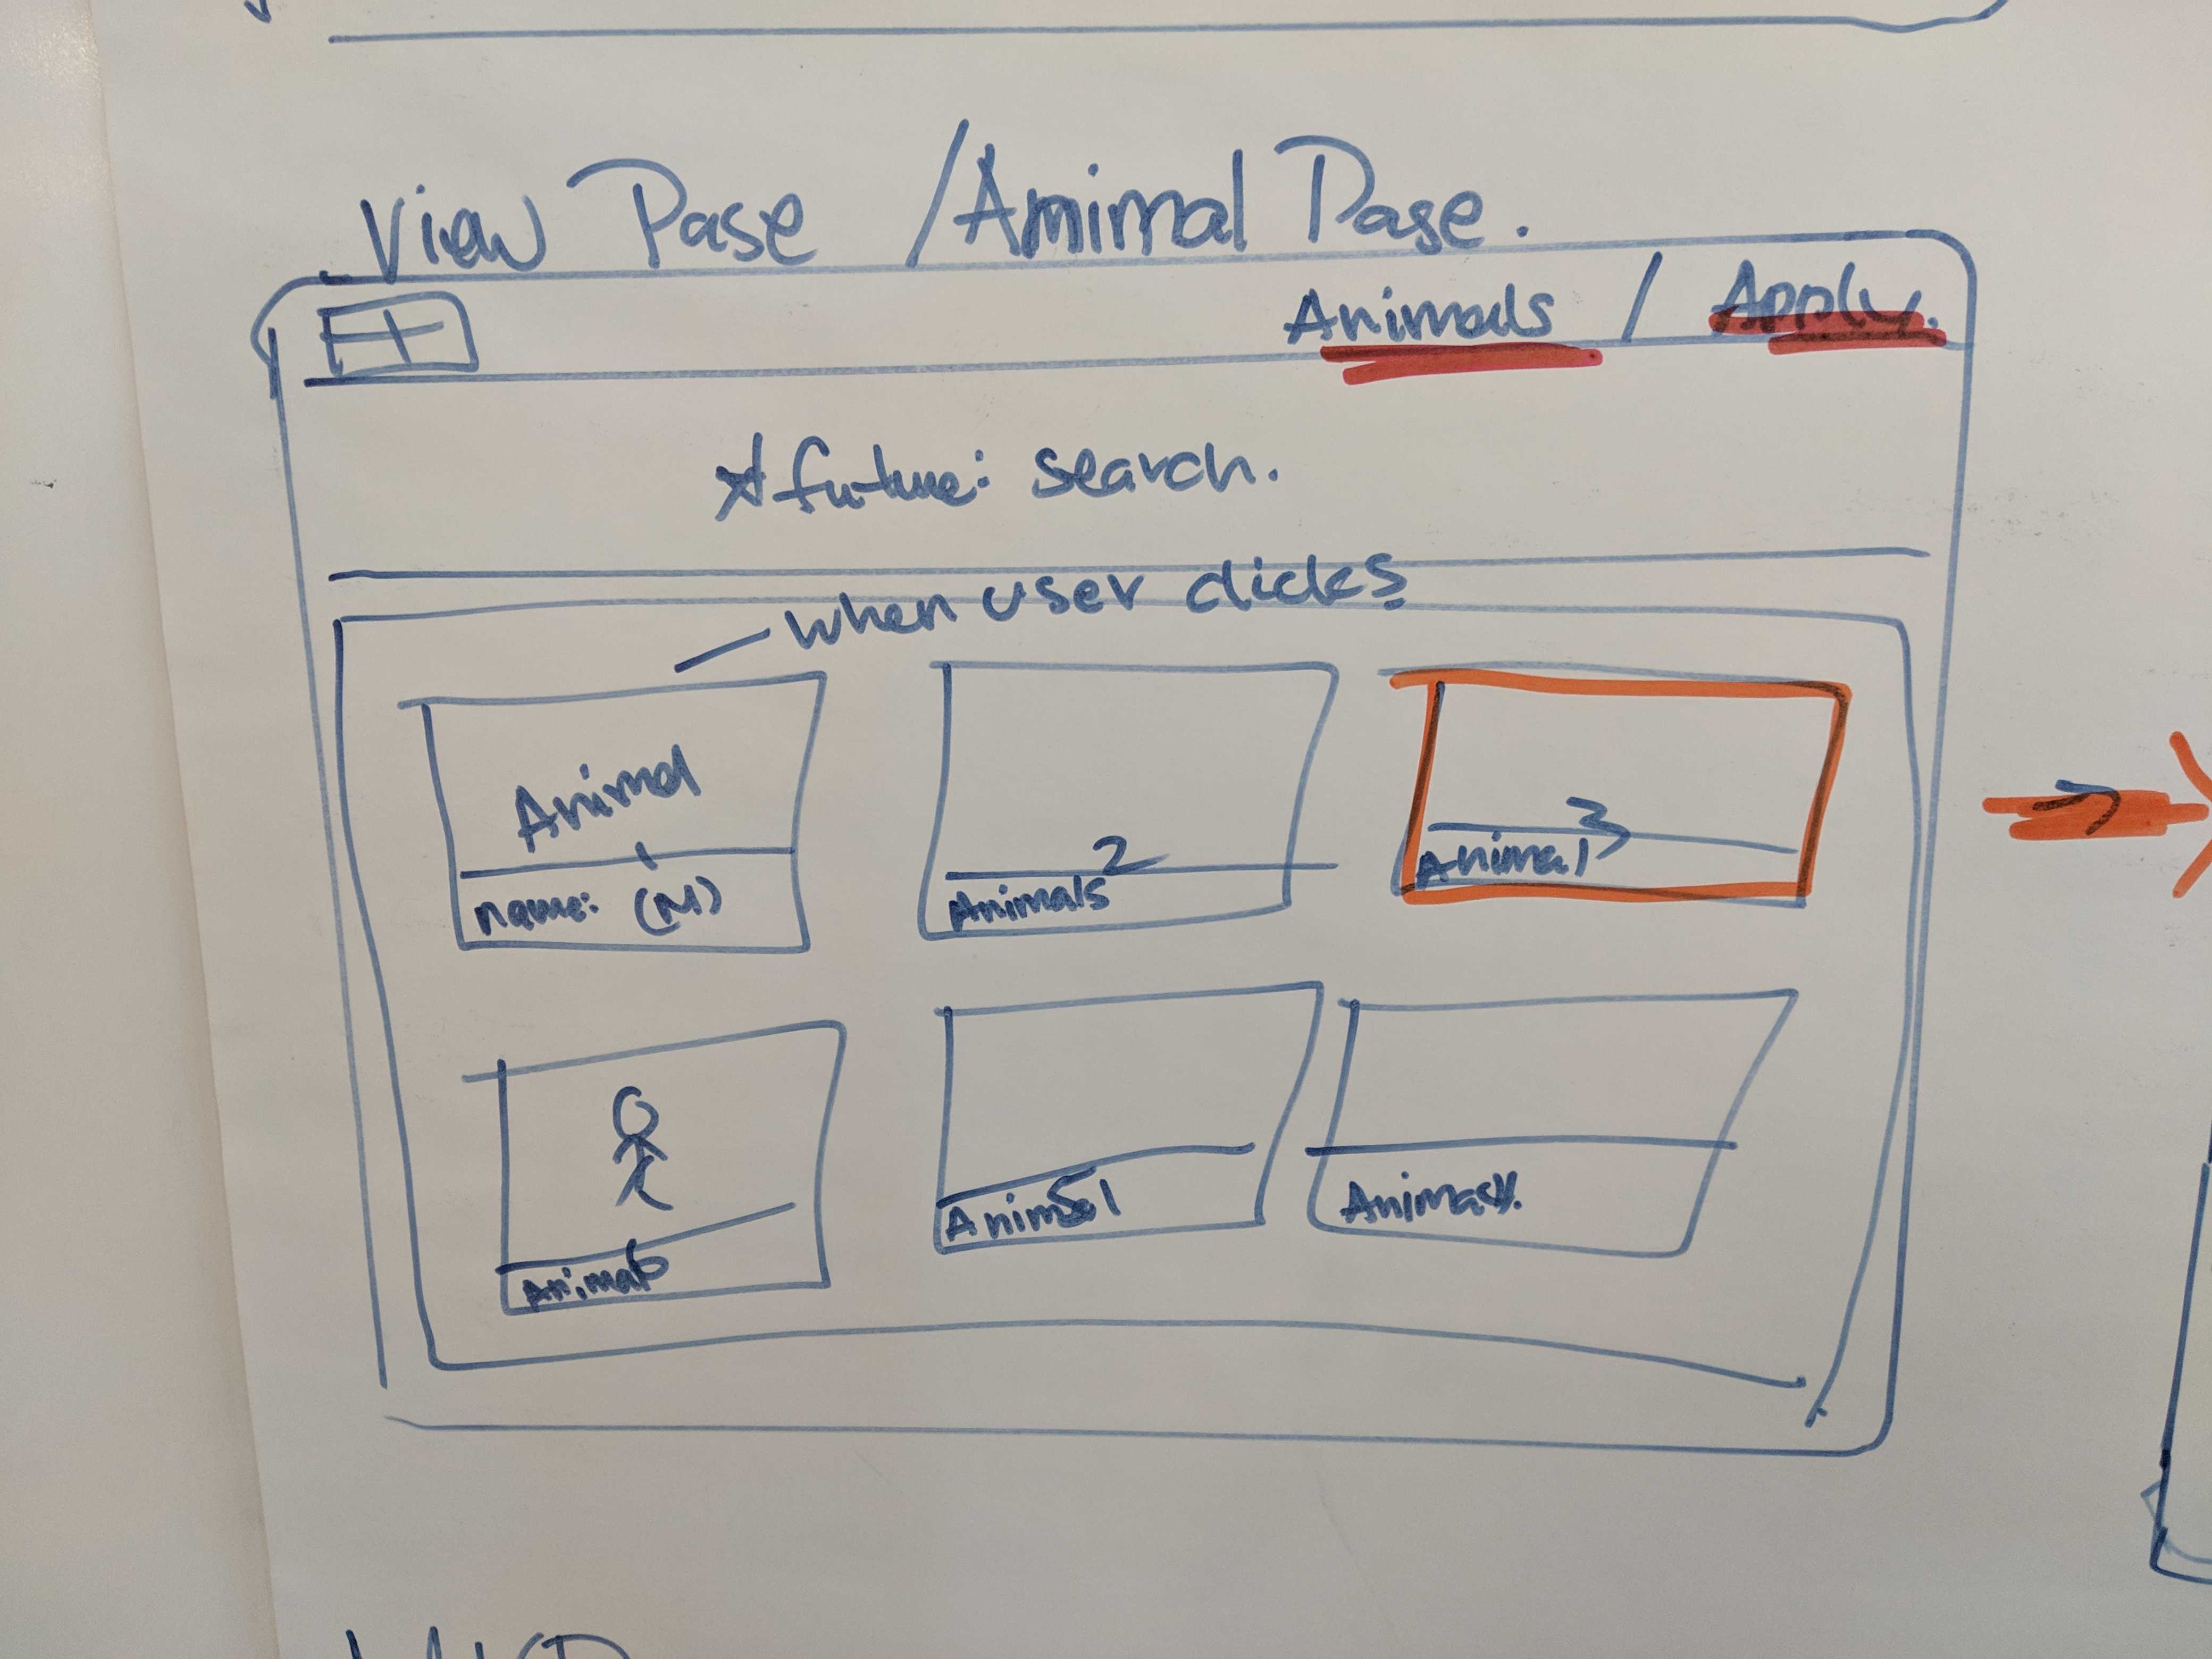 View Page / Animal Page.
Animals / Apply.
* future: search.
when user clicks
Animal
1
name: (M)
Animals 2
Animal 3
Animal 6
Animal 5
Animal 4.